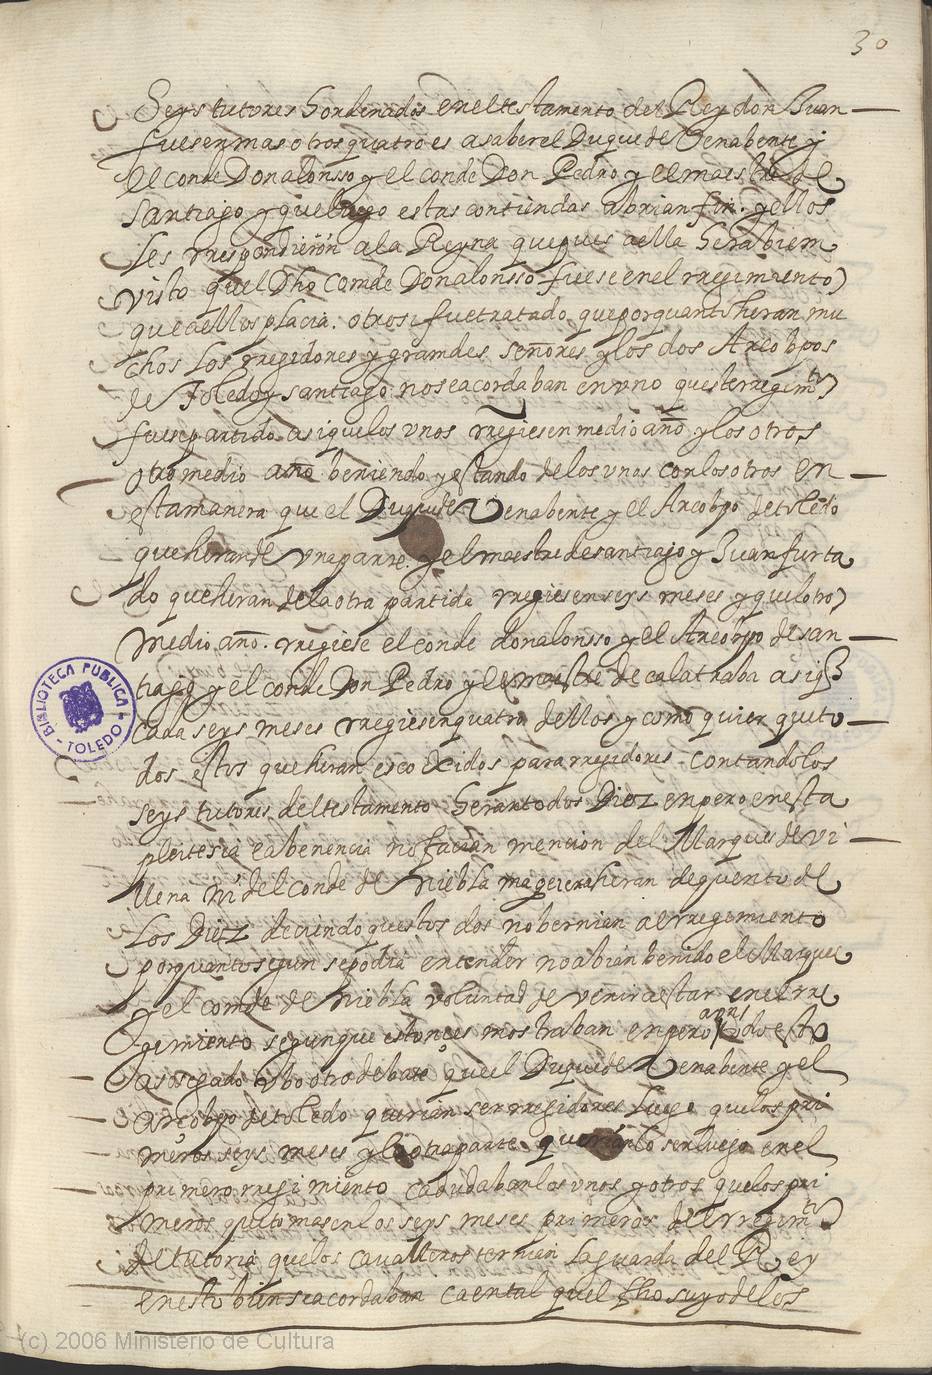 30
Seys tutores hordenados en el testamento del Rey don Juan
fuesen mas otros quatro es a saber el Duque de Benabente y
el conde Don alonsso y el conde Don Pedro y el maestre de
Santiago y que luego estas contiendas abrian fin. y ellos
les rrespondieron a la Reyna que pues a ella hera bien
visto quel Dho Comde Don alonsso fuese en el rregimiento
que a ellos placia. otrosi fue tratado que por quanto heran mu
chos los rregidores y grandes señores y los dos Arcobpos
de Toledo y santiago no se acordaban en vno queste rregimto
fuese partido asi que los vnos rregiesen medio año y los otros
otro medio año beniendo y estando de los vnos con los otros en
esta manera que el Duque de Venabente y el Arcobpo de toledo
que heran de vna parte. y el maestre de santiago y Juan furta
do que heran de la otra partida rregiesen seys meses y quel otro
medio año. rregiese el conde don alonsso y el Arcobpo de san
tiago y el conde Don Pedro y el maestre de calatraba asi q
cada seys meses rregiesen quatro dellos y como quier que to
dos estos que heran escoxidos para rregidores contandolos
seys tutores del testamento heran todos Diez enpero en esta
pleitesia e abenencia no facian mencion del Marques de Vi
llena ni del conde de Niebla mager que heran del quento de
los Diez deciendo questos dos no bernien al rregimiento
por quanto segun se podia entender no abian benido el Marques
y el comde de Niebla voluntad de venir a estar en el rre
gimiento segun que estonces mostraban enpero todo esto
asosegado vbo otro debate que el Duque de Venabente y el
arcobpo de toledo querian ser rregidores luego que los pri
meros seys meses y la otra parte querianlo ser luego en el
primero rregimiento ca dudaban los vnos y otros que los pri
meros que tomasen los seys meses primeros del rregimto
de tutoria que los cavalleros ternian la guarda del Rey
en esto bien se acordaban ca en tal quel fho suyo de los
BIBLIOTECA PUBLICA - TOLEDO -
(c) 2006 Ministerio de Cultura